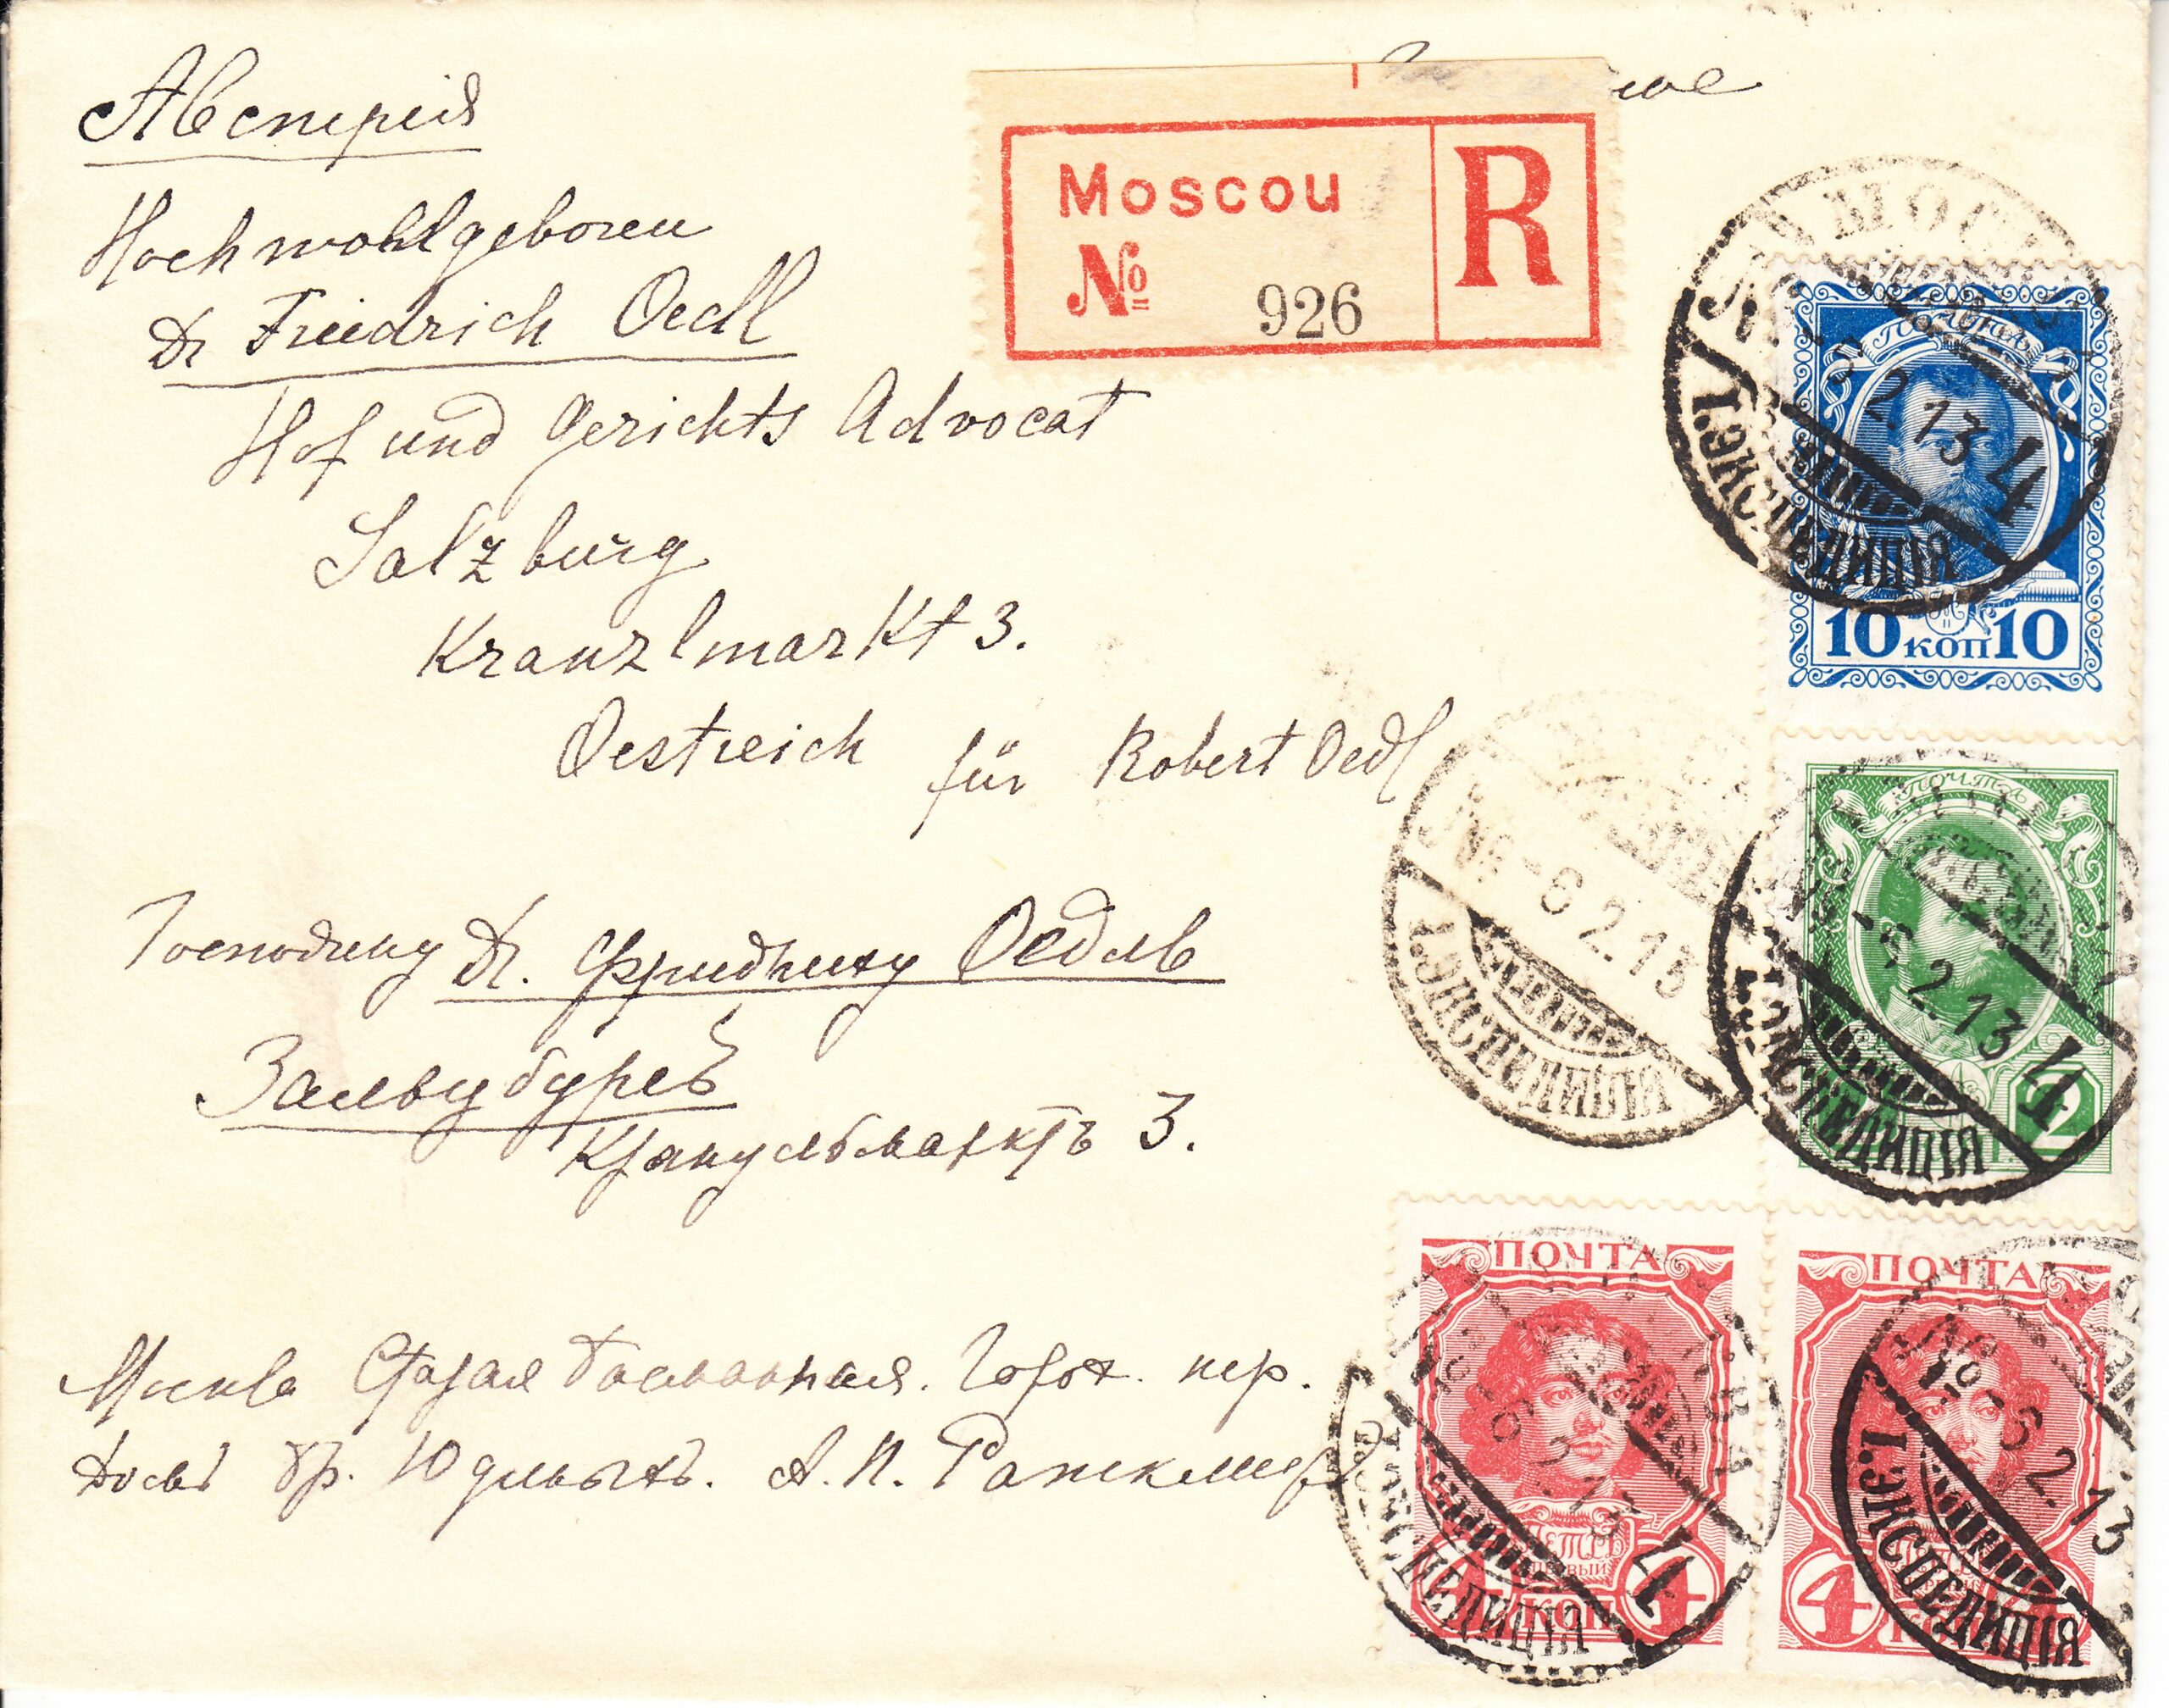 Австрія
Hochwohlgeboren
Dr Friedrich Oedl
Hof und Gerichts Advocat
Salzburg
Kranzlmarkt 3.
Oestreich für Robert Oedl
Moscou
R
№ 926
Господину Dr. Фридриху Оедль
Зальцбургъ
Кранцльмарктъ 3.
Москва Старая Басманная. Горох. пер.
бр.
А. П.
МОСКВА
6 2.13
4
1. ЭКСПЕДИЦІЯ
ПОЧТА
10 КОП 10
6 2.13
1. ЭКСПЕДИЦІЯ
ПОЧТА
6 2.13
4
ЭКСПЕДИЦІЯ
2
ПОЧТА
МОСКВА
6 2.13
4
ЭКСПЕДИЦІЯ
ПЕТРЪ
ПЕРВЫЙ
4 КОП 4
ПОЧТА
6 2.13
1. ЭКСПЕДИЦІЯ
4